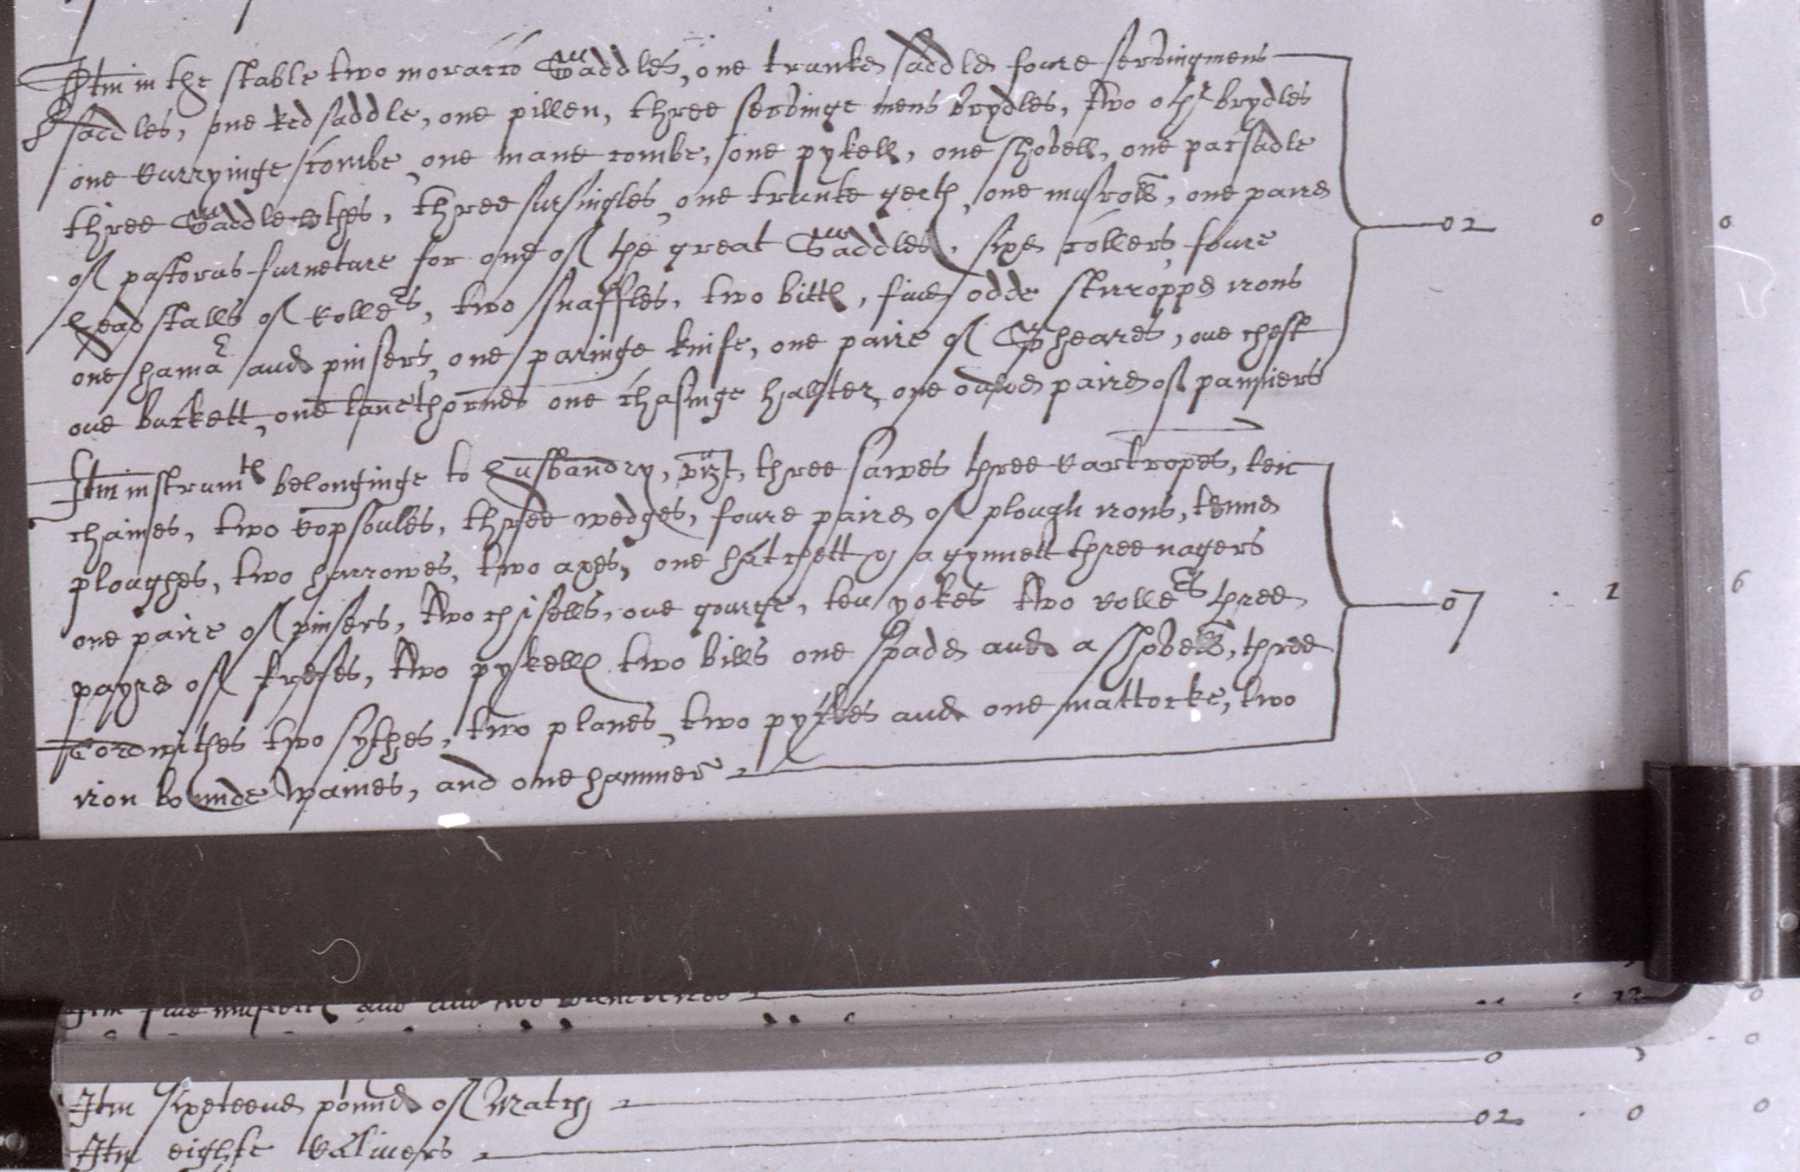 Itm in the stable two moracco Saddles, one trunke saddle foure servingmens
saddles, one ked saddle, one pillen, three servinge mens brydles, two othr brydles
one curryinge combe, one mane combe, one pykell, one shovell, one pacsadle
three Saddle clothes, three sursingles, one trunke gerth, one musroll, one paire
of pastorns furneture for one of the great Saddles, sixe collers, foure
head stalls of collers, two snaffles, two bitts, five odde stirroppe irons
one hamer and pinsers, one paringe knife, one paire of Sheares, one chest
one buckett, one lanethorne one chasinge halster, one paire of panniers
Itm instrumts belonginge to husbandry, vizt, three sawes three cartropes, ten
chaines, two copsoules, three wedges, foure paire of plough irons, tenne
ploughes, two harrowes, two axes, one hatchett a gymlett three nagers
one paire of pinsers, two chisells, one gourge, ten yokes two collers three
payre of treses, two pykells two bills one spade and a shovell, three
cordwithes two sythes, two planes, two pykes and one mattocke, two
iron bounde waines, and one hammer
02 0 0
07 2 6
Itm sixteene pound of Match 0
Itm eighte Calivers 02 0 0